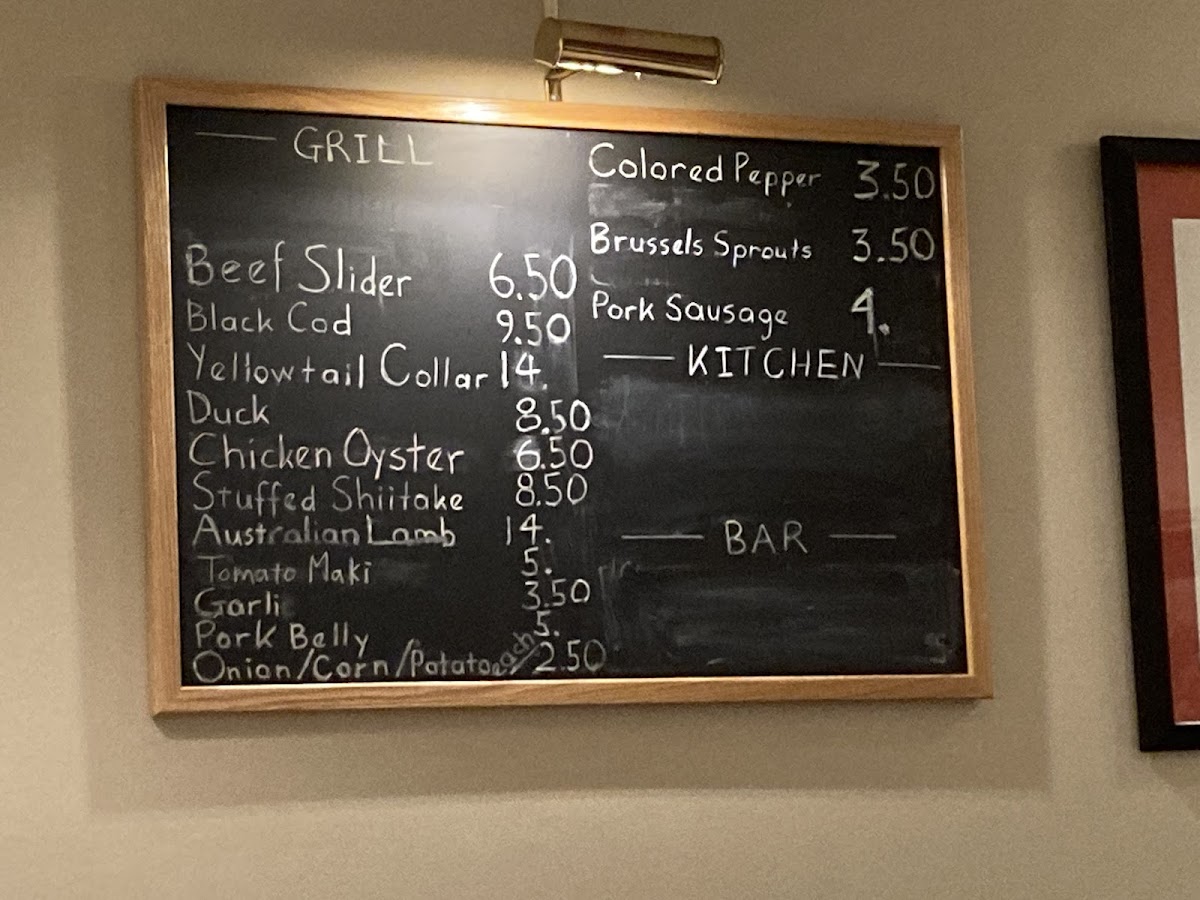 GRILL
Beef Slider 6.50
Black Cod 9.50
Yellowtail Collar 14.
Duck 8.50
Chicken Oyster 6.50
Stuffed Shiitake 8.50
Australian Lamb 14.
Tomato Maki 5.
Garli 3.50
Pork Belly 5.
Onion/Corn/Potato each/2.50
Colored Pepper 3.50
Brussels Sprouts 3.50
Pork Sausage 4.
KITCHEN
BAR